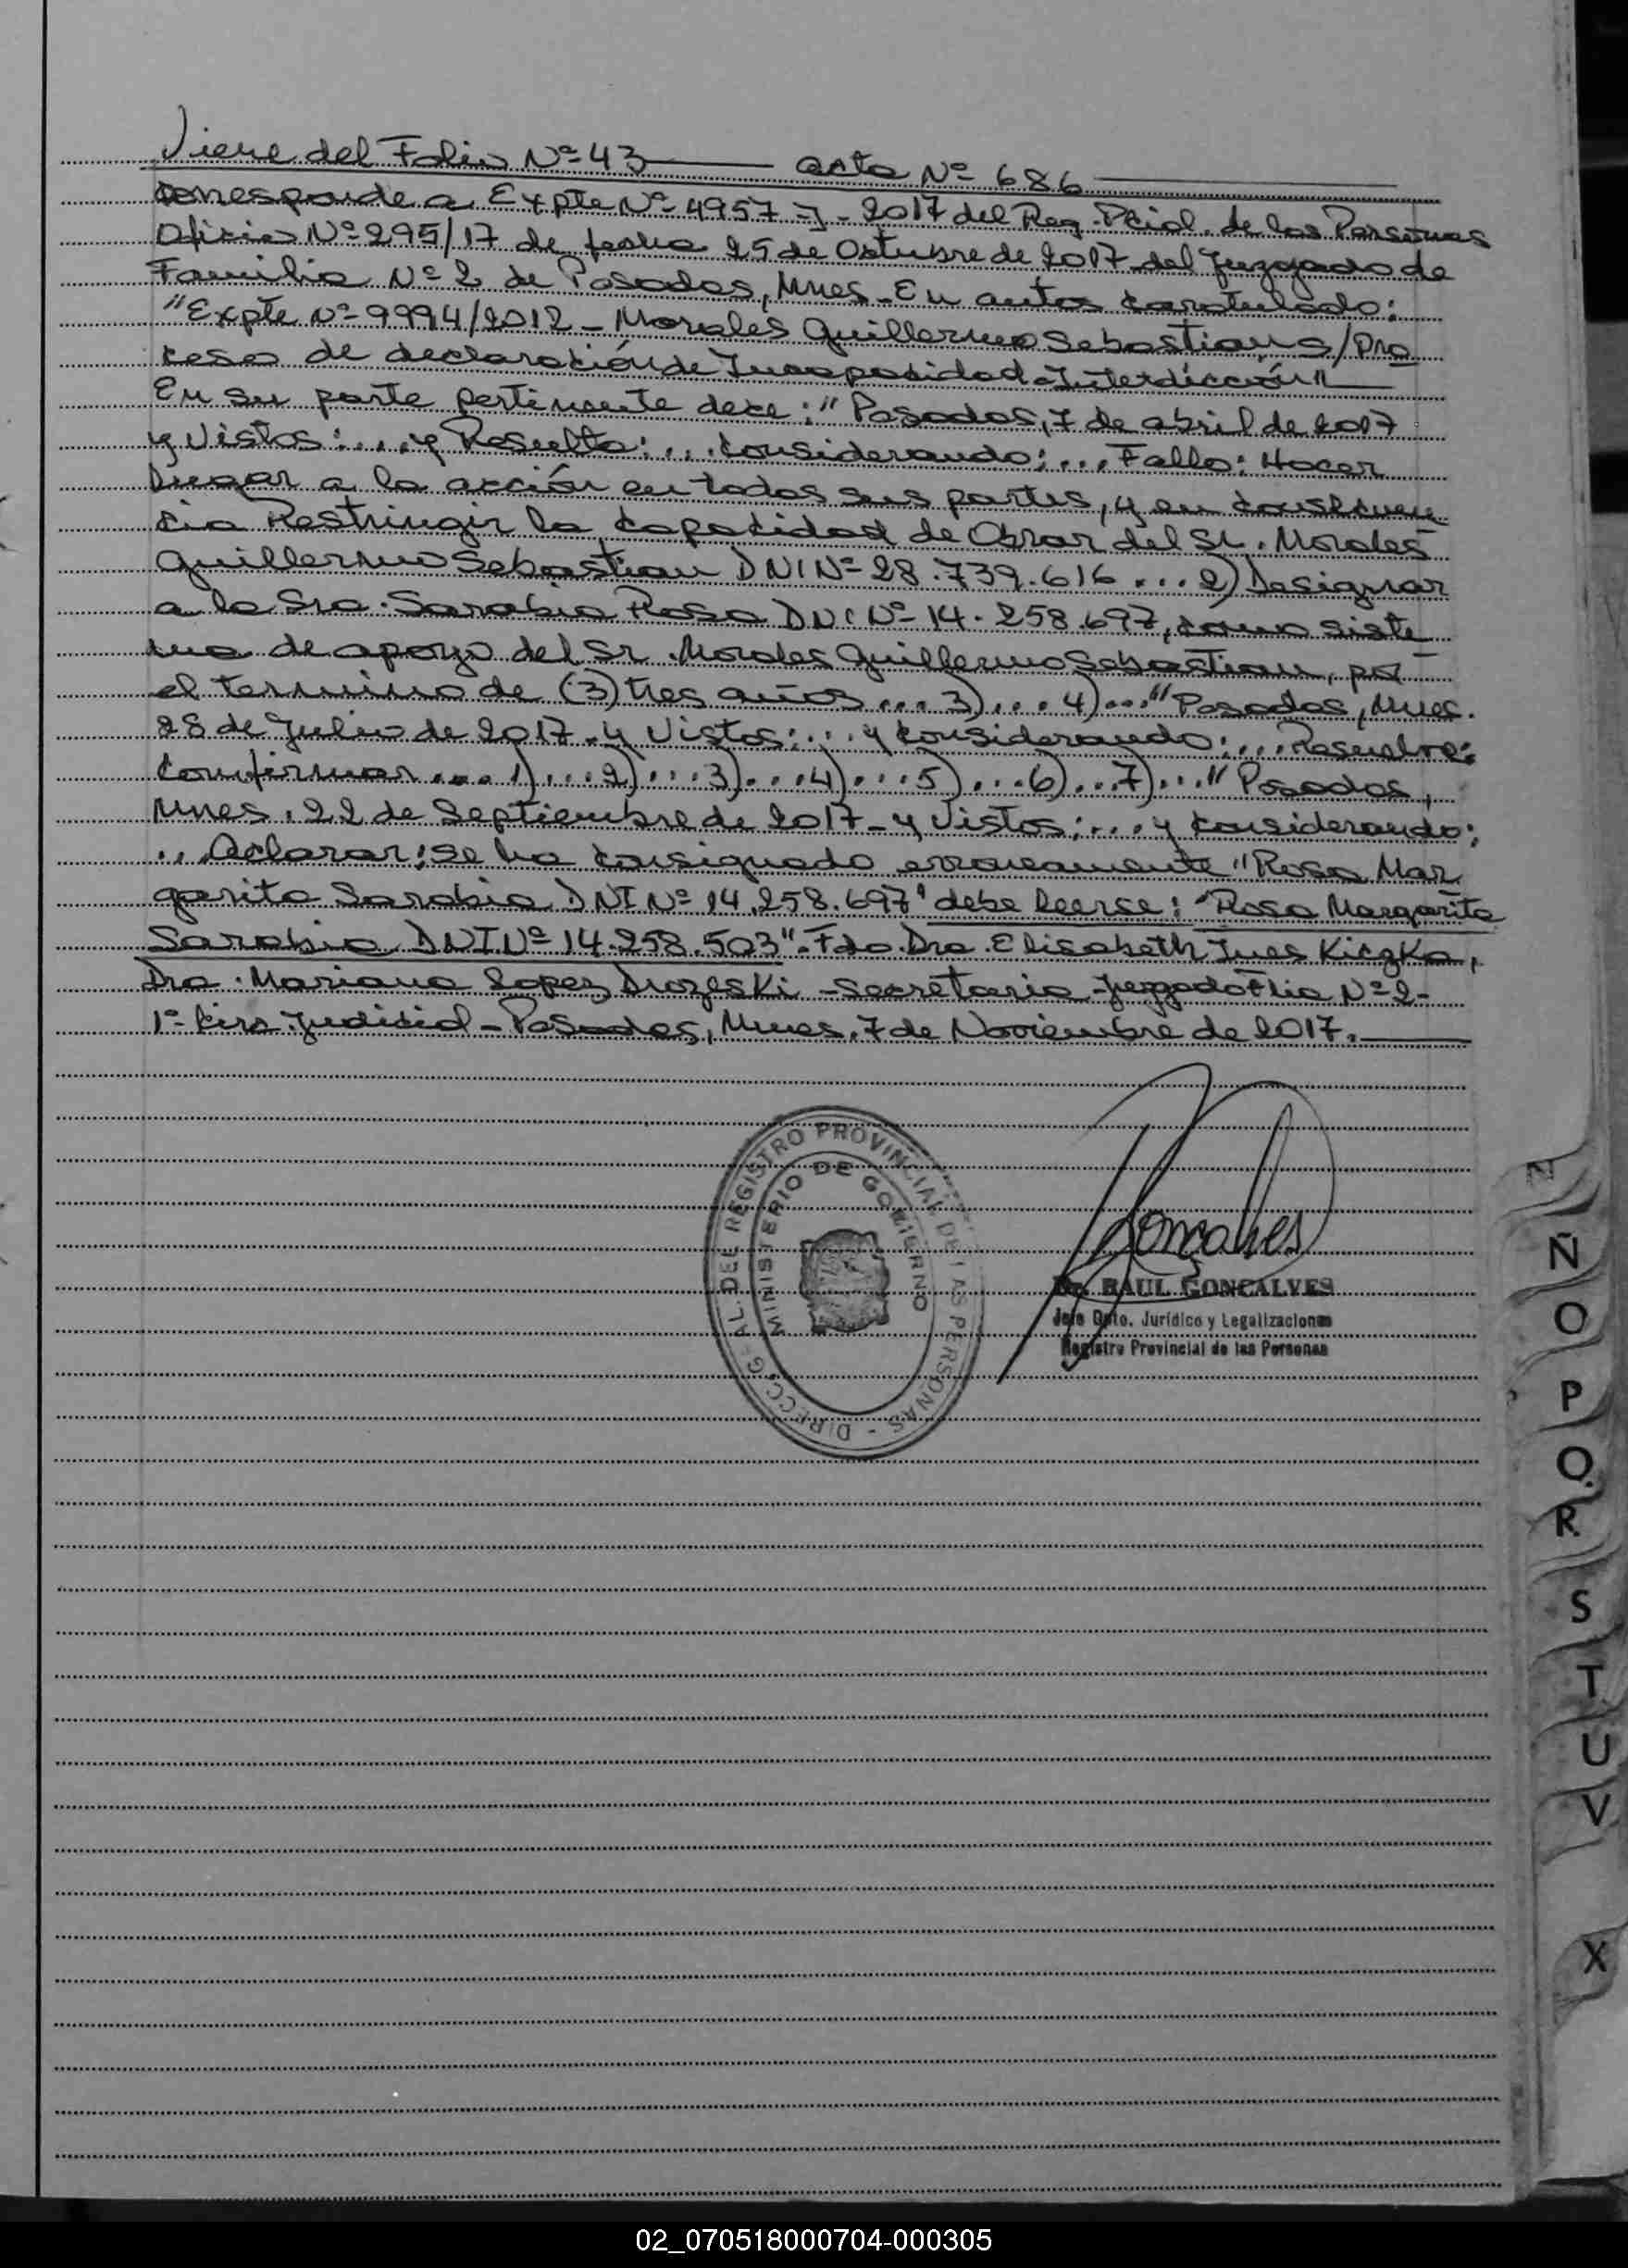 Viene del Folio Nº 43 acta Nº 686
corresponde a Expte Nº 4957-J-2017 del Reg. Pcial. de las Personas
Oficio Nº 295/17 de fecha 25 de Octubre de 2017 del Juzgado de
Familia Nº 2 de Posadas, Mnes. En autos caratulado:
"Expte Nº 9994/2012 - Morales Guillermo Sebastian s/Pro
ceso de declaración de Incapacidad - Interdicción"
En su parte pertinente dece: "Posadas, 7 de abril de 2017
y Vistos:... y Resulta:... Considerando:... Fallo: Hacer
lugar a la acción en todas sus partes, y en consecuen
cia Restringir la capacidad de Obrar del Sr. Morales
Guillermo Sebastian DNI Nº 28.739.616 ... 2) Designar
a la Sra. Sarabia Rosa DNI Nº 14.258.697, como siste
ma de apoyo del Sr. Morales Guillermo Sebastian, por
el termino de (3) tres años ... 3)... 4)..." Posadas, Mnes.
28 de Julio de 2017 - y Vistos:... y Considerando:... Resuelve:
Confirmar ... 1)...2)...3)...4)...5)...6)...7)..." Posadas,
Mnes, 22 de Septiembre de 2017 - y Vistos:... y considerando:
...Aclarar: se ha consignado erroneamente "Rosa Mar
garita Sarabia DNI Nº 14.258.697" debe leerse: "Rosa Margarita
Sarabia DNI Nº 14.258.503". Fdo. Dra. Elisabeth Ines Kiczka,
Dra. Mariana Lopez Drozeski - Secretaria - Juzgado Flia Nº 2 -
1º Circ. Judicial - Posadas, Mnes. 7 de Noviembre de 2017.
DIRECC. GRAL. DEL REGISTRO PROVINCIAL DE LAS PERSONAS -
MINISTERIO DE GOBIERNO
Goncalves
Dr. RAUL GONCALVES
Jefe Dpto. Jurídico y Legalizaciones
Registro Provincial de las Personas
N
Ñ
O
P
Q
R
S
T
U
V
X
02_070518000704-000305